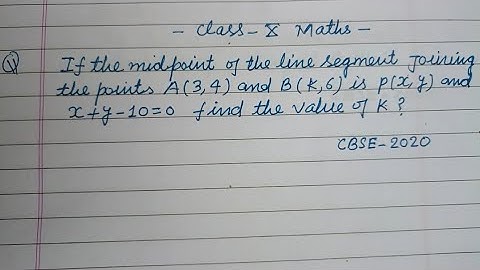 - Class - X Maths -
Q If the midpoint of the line segment joining
the points A(3,4) and B(K,6) is P(x,y) and
x+y-10=0 find the value of K?
CBSE-2020